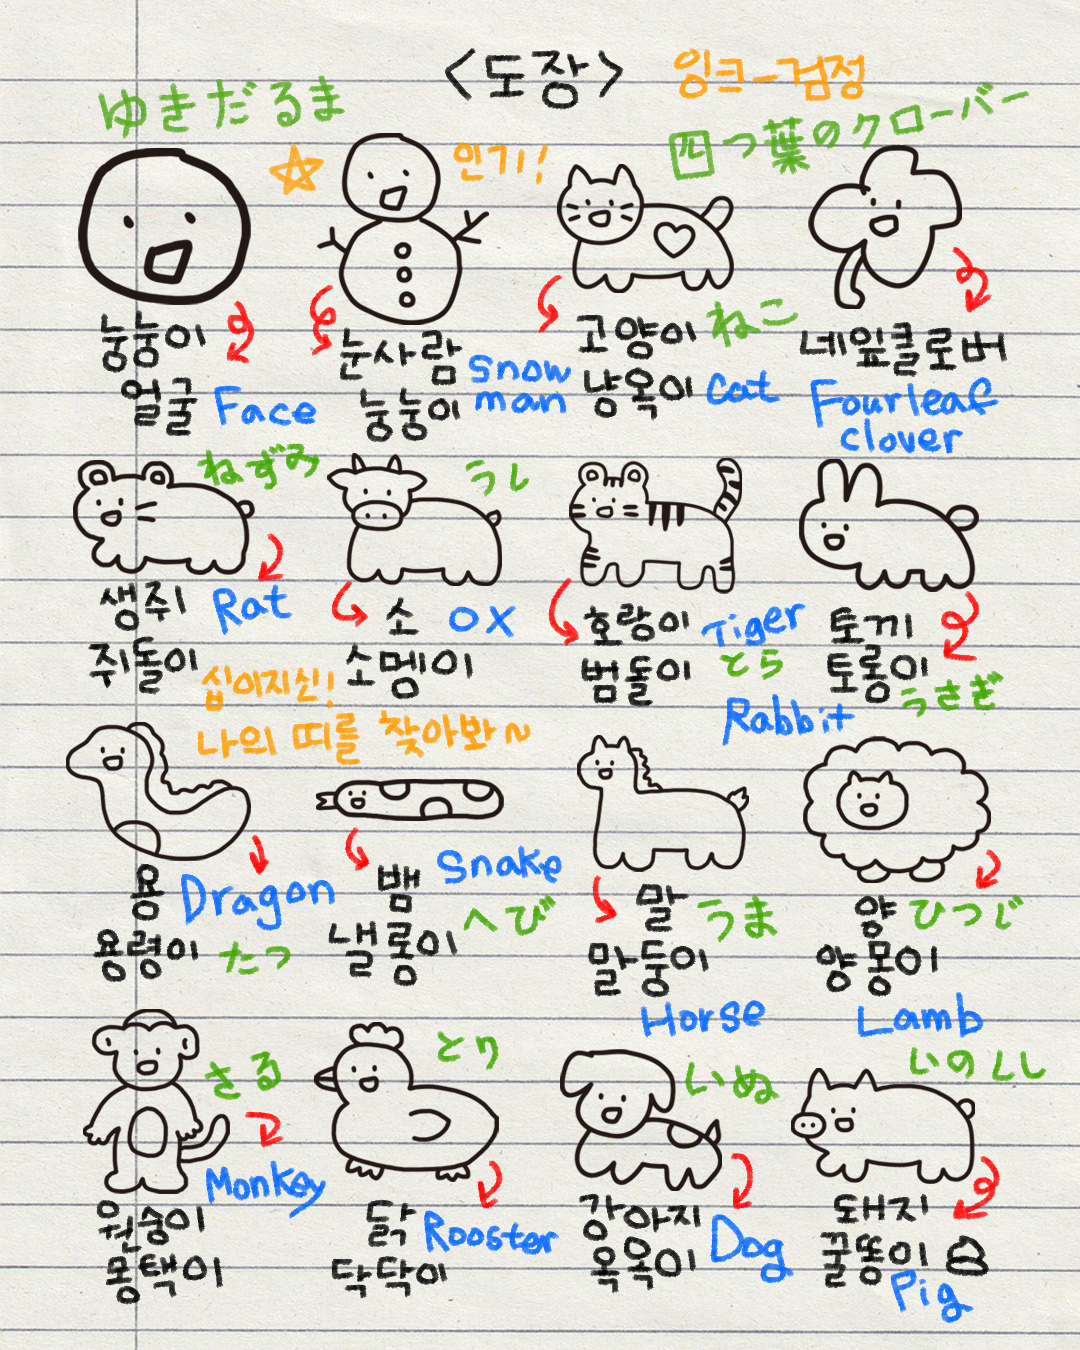 <도장> 잉크-검정
ゆきだるま
인기!
四つ葉のクローバー
눙눙이
얼굴 Face
눈사람
눙눙이
Snow
man
고양이 ねこ
냥옥이 Cat
네잎클로버
Four leaf
clover
ねずみ
생쥐 Rat
쥐돌이
うし
소 OX
소멩이
호랑이 Tiger
범돌이 とら
토끼
토롱이 うさぎ
Rabbit
십이지신!
나의 띠를 찾아봐~
용 Dragon
용령이 たつ
뱀 Snake
낼롱이 へび
말 うま
말둥이
Horse
양 ひつじ
양몽이
Lamb
さる
Monkey
원숭이
몽택이
とり
닭 Rooster
닥닥이
いぬ
강아지 Dog
옥옥이
いのしし
돼지
꿀똥이
Pig